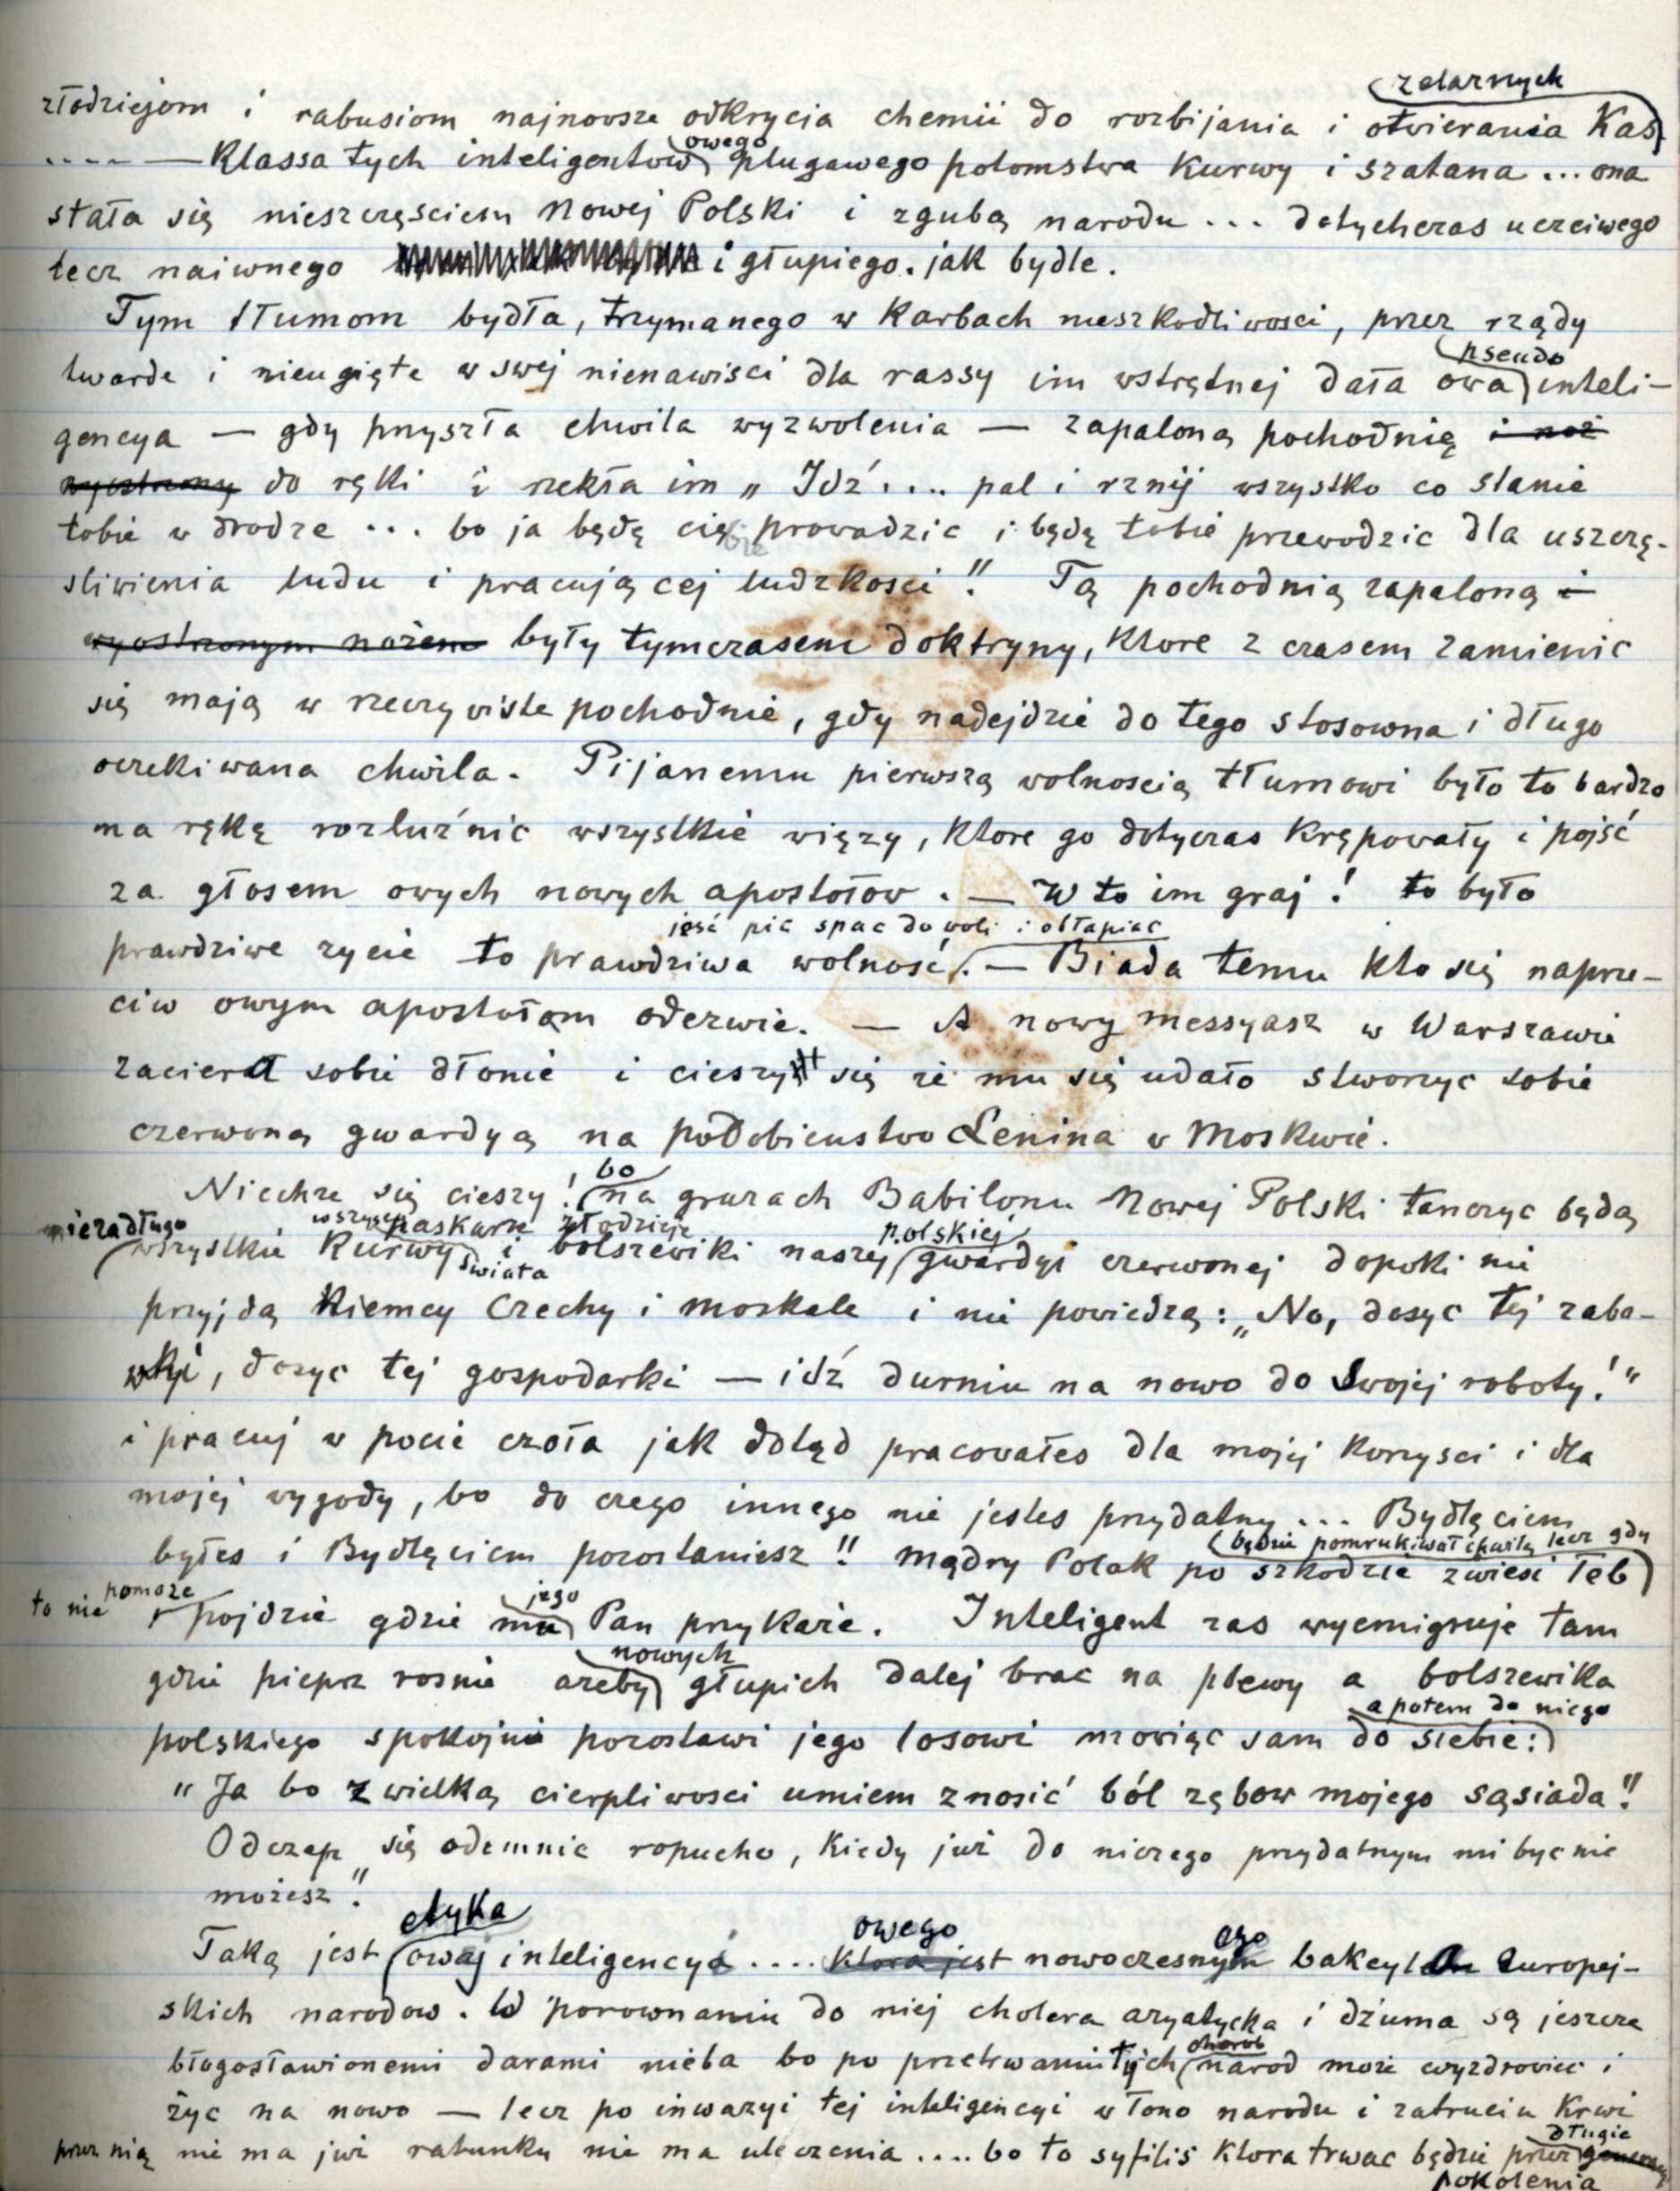 żelaznych
złodziejom i rabusiom najnowsze odkrycia chemii do rozbijania i otwierania Kas
.... — Klassa tych inteligentow owego plugawego potomstwa Kurwy i szatana ... ona
stała się nieszczęsciem Nowej Polski i zgubą narodu ... dotychczas uczciwego
lecz naiwnego i głupiego. jak bydle.
Tym tłumom bydła, trzymanego w Karbach nieszkodliwosci, przez rządy
twarde i nieugięte w swej nienawisci dla rassy im wstrętnej dała owa pseudo inteli-
gencya — gdy przyszła chwila wyzwolenia — zapaloną pochodnię i noż
wyostrzony do ręki i rzekła im „ Idź .... pal i rznij wszystko co stanie
tobie w drodze ... bo ja będę cię prowadzic i będę tobie przewodzic dla uszczę-
sliwienia ludu i pracującej ludzkosci!" Tą pochodnią zapaloną i
wyostrzonym nożem były tymczasem doktryny, Ktore z czasem zamienic
się mają w rzeczywiste pochodnie, gdy nadejdzie do tego stosowna i długo
oczekiwana chwila. Pijanemu pierwszą wolnoscią tłumowi było to bardzo
na rękę rozluźnic wszystkie więzy, Ktore go dotyczas Krępowały i pojść
za głosem owych nowych apostołow. — W to im graj! to było
jeść pic spac do woli i obłapiac
prawdziwe zycie to prawdziwa wolność. — Biada temu kto się naprze-
ciw owym apostołom oderwie. — A nowy messyasz w Warszawie
zaciera sobie dłonie i cieszy się że mu się udało stworzyc sobie
czerwoną gwardyą na podobienstwo Lenina w Moskwie.
Niechze się cieszy! bo na gruzach Babilonu Nowej Polski tanczyc będą
niezadługo wszyscy paskarze złodzieje polskiej
wszystkie Kurwy świata i bolszewiki naszej gwardyi czerwonej dopoki nie
przyjdą Niemcy Czechy i moskale i nie powiedzą: „No, dosyc tej zaba-
wki, dosyc tej gospodarki — idź durniu na nowo do swojej roboty!"
i pracuj w pocie czoła jak dotąd pracowałes dla mojej Korzysci i dla
mojej wygody, bo do czego innego nie jestes przydatny ... Bydlęciem
byłes i Bydlęciem pozostaniesz!! mądry Polak po szkodzie zwiesi łeb
będzie pomrukiwał chwilę lecz gdy
to nie pomoże pojdzie gdzie mu jego Pan przykaże. Inteligent zas wyemigruje tam
gdzie pieprz rosnie azeby nowych głupich dalej brac na plewy a bolszewika
polskiego spokojnie pozostawi jego losowi mowiąc sam do siebie: a potem do niego
„Ja bo z wielką cierpliwosci umiem znosić ból zębow mojego sąsiada!"
Odczep się odemnie ropucho, Kiedy już do niczego przydatnym mi byc nie
możesz".
Taką jest etyka owej inteligencyi .... Ktora jest owego nowoczesnego bakcyla europej-
skich narodow. W porownaniu do niej cholera azyatycka i dżuma są jeszcze
błogosławionemi darami nieba bo po przetrwaniu tych chorob narod może wyzdrowiec i
życ na nowo — lecz po inwazyi tej inteligencyi w łono narodu i zatruciu Krwi
przez nią nie ma już ratunku nie ma uleczenia .... bo to syfilis Ktora trwac będzie przez długie
pokolenia